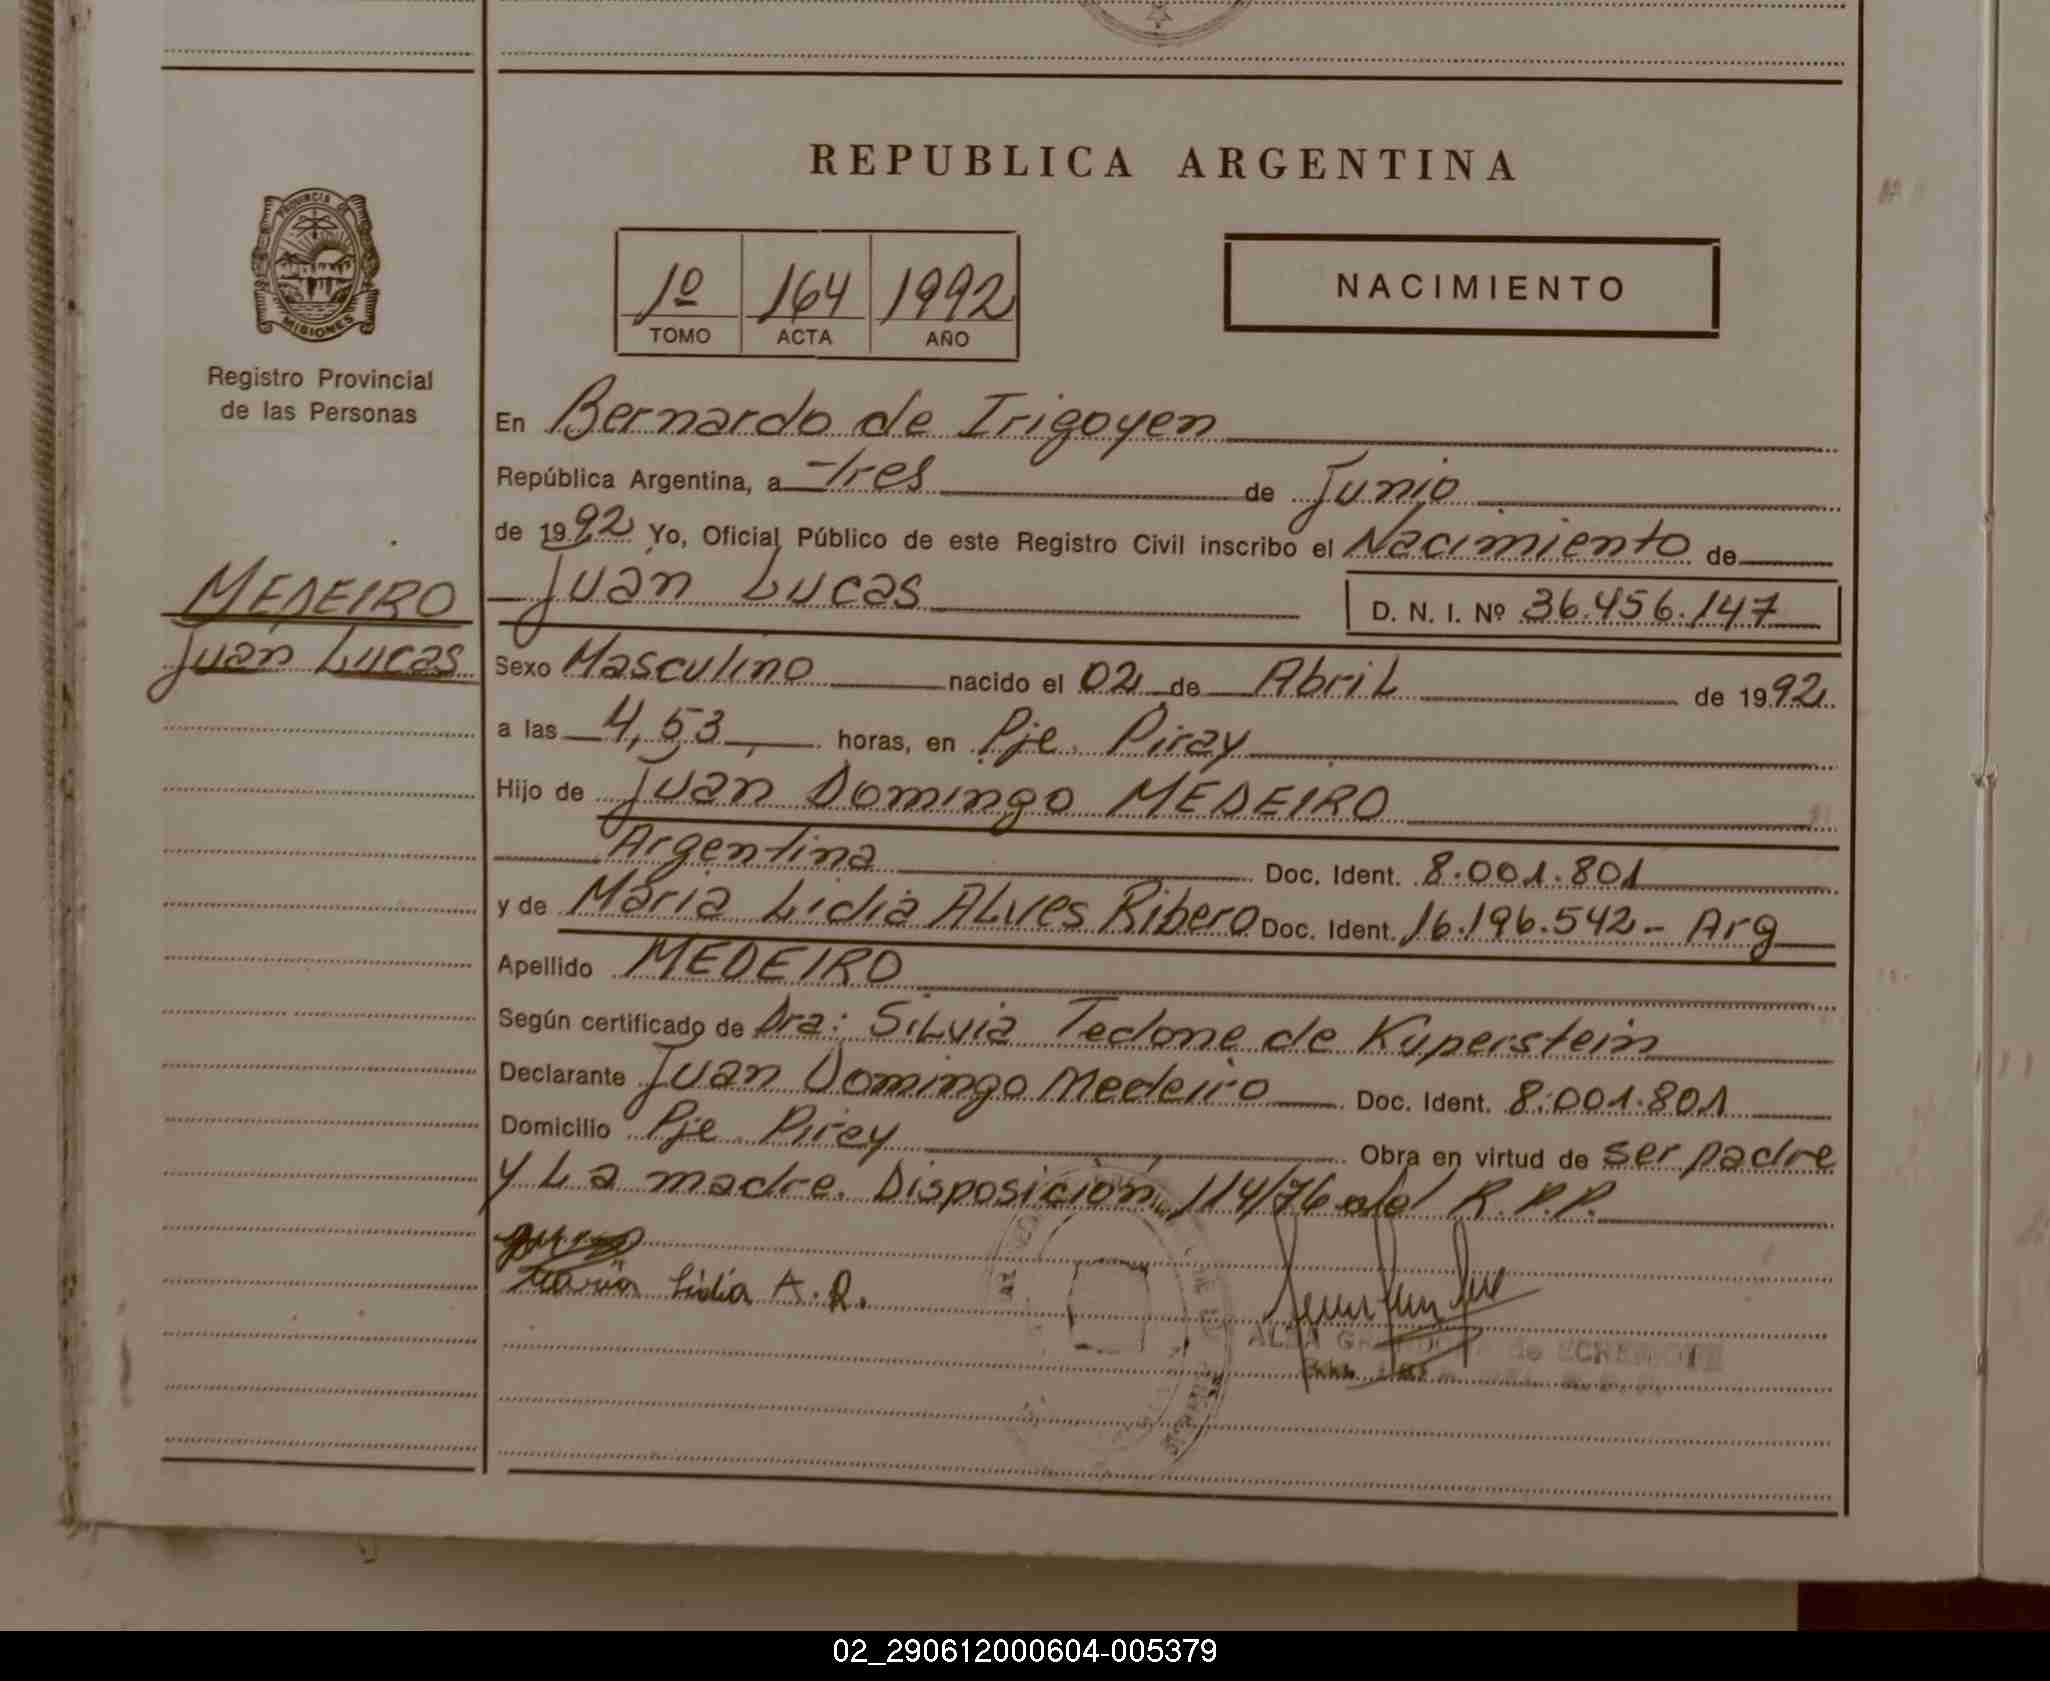 REPUBLICA ARGENTINA
PROVINCIA DE
MISIONES
Registro Provincial
de las Personas
1º 164 1992
TOMO ACTA AÑO
NACIMIENTO
En Bernardo de Irigoyen
República Argentina, a tres de Junio
de 1992 Yo, Oficial Público de este Registro Civil inscribo el Nacimiento de
MEDEIRO
Juan Lucas
Juan Lucas D. N. I. Nº 36.456.147
Sexo Masculino nacido el 02 de Abril de 1992
a las 4,53 horas, en Pje. Piray
Hijo de Juan Domingo MEDEIRO
Argentina Doc. Ident. 8.001.801
y de Maria Lidia ALves Ribero Doc. Ident. 16.196.542 - Arg
Apellido MEDEIRO
Según certificado de Dra: Silvia Tedone de Kuperstein
Declarante Juan Domingo Medeiro Doc. Ident. 8.001.801
Domicilio Pje Pirey Obra en virtud de ser padre
y La madre. Disposición, 114/76 del R.P.P.
Maria Lidia A. R.
02_290612000604-005379